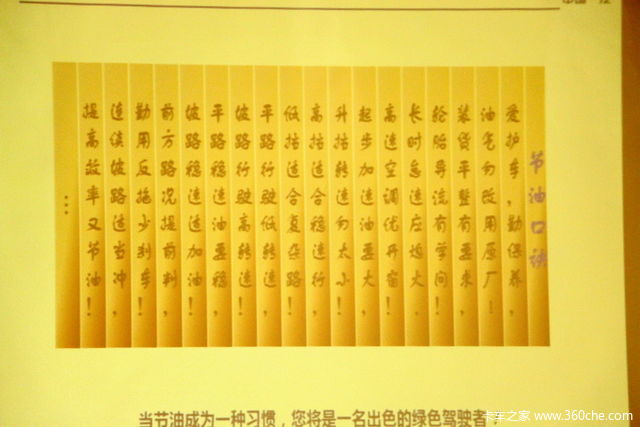 节油口诀
爱护车,勤保养,
油气勿改用原厂!
装货平整有要求,
轮胎导流有学问!
长时怠速应熄火,
高速空调优开窗!
起步加速油要大,
升挡转速勿太小!
高挡适合稳速行,
低挡适合复杂路!
平路行驶低转速,
坡路行驶高转速!
平路稳速油要稳,
坡路稳速适加油!
前方路况提前判,
勤用反拖少刹车!
连续坡路适当冲,
提高效率又节油!
...
当节油成为一种习惯，您将是一名出色的绿色驾驶者！
卡车之家 www.360che.com